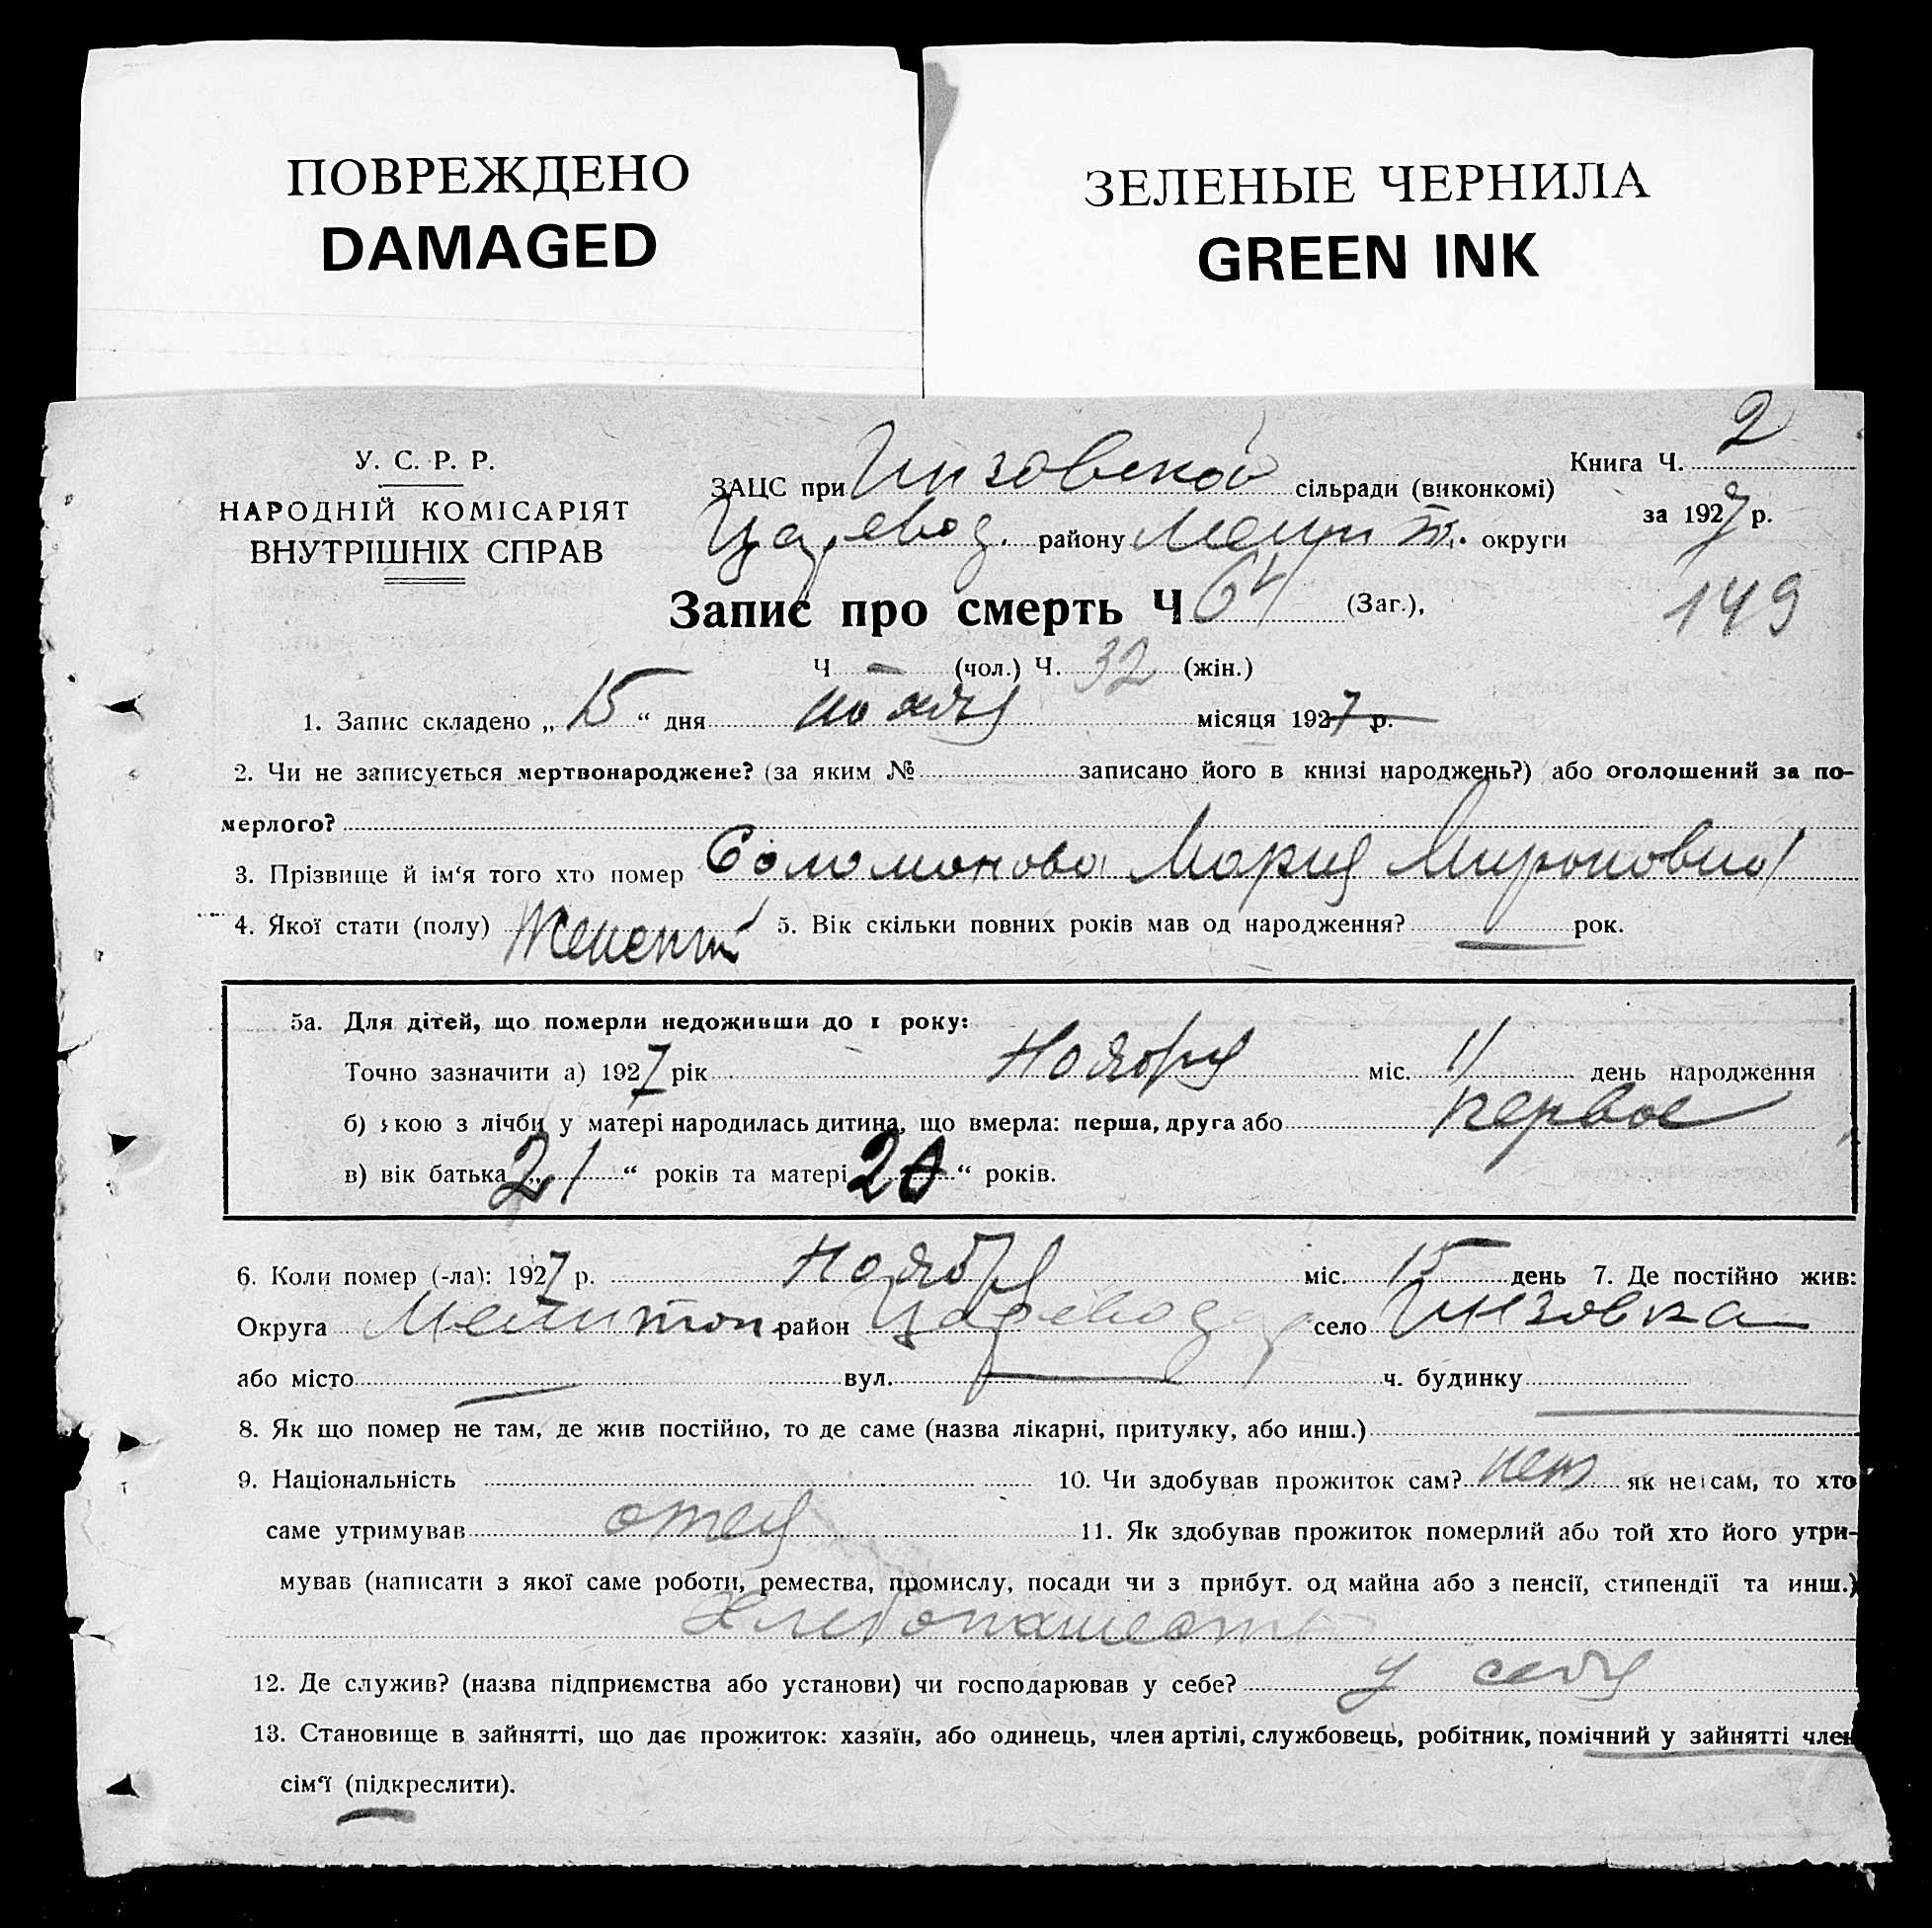 ПОВРЕЖДЕНО
DAMAGED
ЗЕЛЕНЫЕ ЧЕРНИЛА
GREEN INK
У. С. Р. Р.
НАРОДНІЙ КОМІСАРІЯТ
ВНУТРІШНІХ СПРАВ
Книга Ч. 2
ЗАЦС при Гизовской сільради (виконкомі)
за 1927 р.
Царевод. району Мелит. округи
149
Запис про смерть Ч 64 (Заг.),
Ч — (чол.) Ч. 32 (жін.)
1. Запис складено „ 15 “ дня ноября місяця 1927 р.
2. Чи не записується мертвонароджене? (за яким № записано його в книзі народжень?) або оголошений за по-
мерлого?
3. Прізвище й ім‘я того хто помер Соломонова Мария Мироновна
4. Якої стати (полу) Женск 5. Вік скільки повних років мав од народження? — рок.
5а. Для дітей, що померли недоживши до 1 року:
Точно зазначити а) 1927 рік Ноября міс. 11 день народження
б) якою з лічби у матері народилась дитина, що вмерла: перша, друга або первое
в) вік батька „ 21 “ років та матері 20 “ років.
6. Коли помер (-ла): 1927 р. Ноября міс. 15 день 7. Де постійно жив:
Округа Мелитоп. район Царевод село Гизовка
або місто — вул. — ч. будинку —
8. Як що помер не там, де жив постійно, то де саме (назва лікарні, притулку, або инш.)
9. Національність 10. Чи здобував прожиток сам? нет як не сам, то хто
саме утримував отец 11. Як здобував прожиток померлий або той хто його утри-
мував (написати з якої саме роботи, ремества, промислу, посади чи з прибут. од майна або з пенсії, стипендії та инш.)
Хлебопашеств
12. Де служив? (назва підприємства або установи) чи господарював у себе? у себя
13. Становище в зайнятті, що дає прожиток: хазяїн, або одинець, член артілі, службовець, робітник, помічний у зайнятті член
сім‘ї (підкреслити).